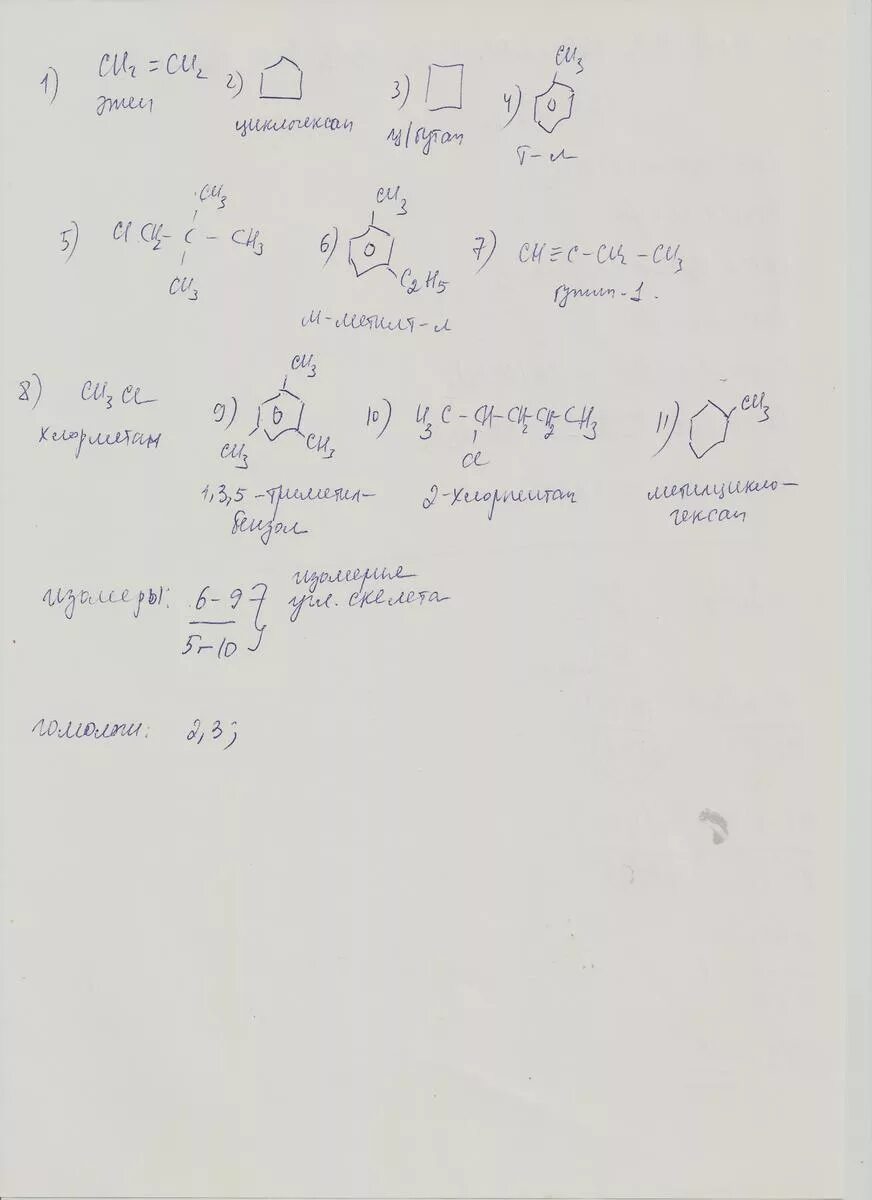 1) CH₂=CH₂
этен
2)
циклогексан
3)
ц/бутан
4) CH₃
т-л
5) Cl CH₂ - C - CH₃
CH₃
CH₃
6) CH₃
C₂H₅
м-метилт-л
7) CH≡C-CH₂-CH₃
бутин-1.
8) CH₃Cl
хлорметан
9) CH₃
CH₃
CH₃
1,3,5-триметил-
бензол
10) H₃C - CH-CH₂-CH₂-CH₃
Cl
2-хлорпентан
11) CH₃
метилцикло-
гексан
изомеры: 6-9
5-10
изомерия
угл. скелета
гомологи: 2,3;